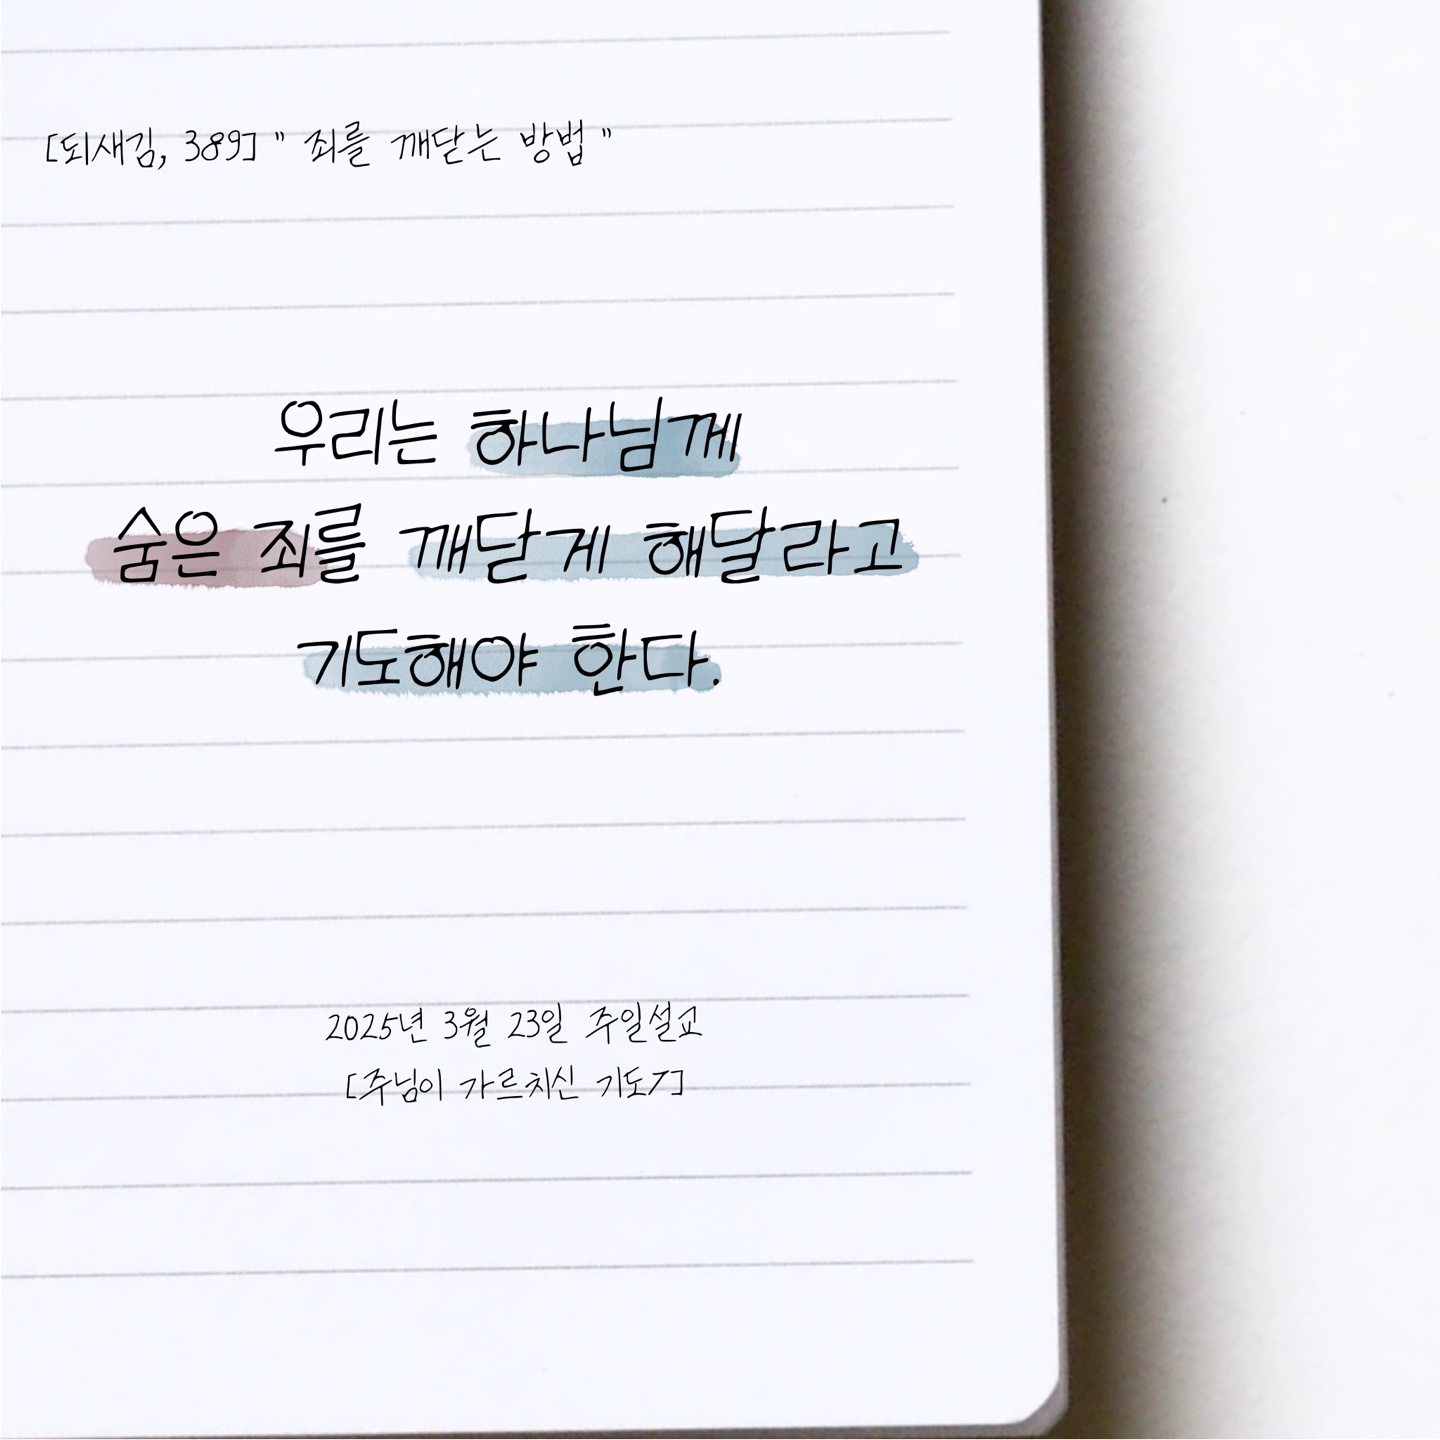 [되새김, 389] " 죄를 깨닫는 방법 "
우리는 하나님께
숨은 죄를 깨닫게 해달라고
기도해야 한다.
2025년 3월 23일 주일설교
[주님이 가르치신 기도7]